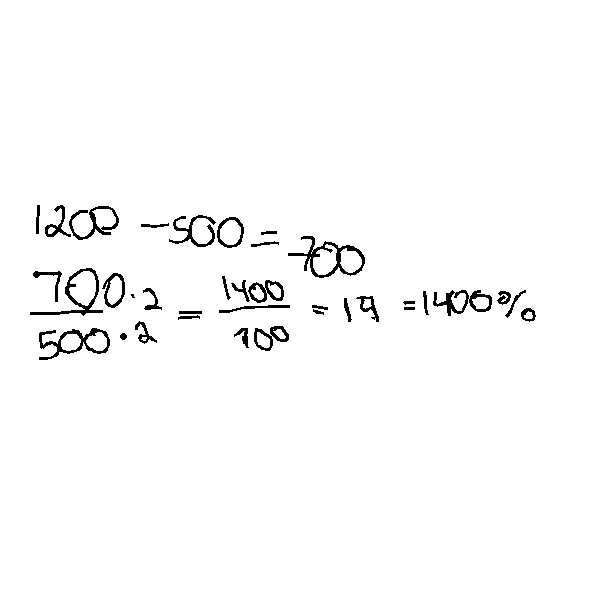 1200 - 500 = 700
700·2 / 500·2 = 1400 / 100 = 14 = 1400%